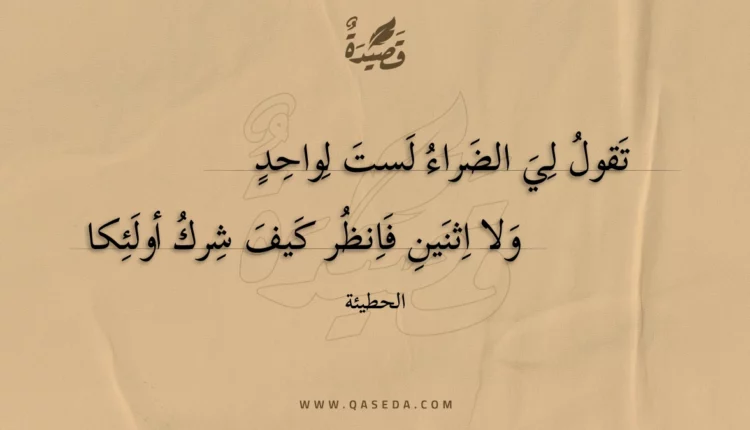 قَصِيدَةٌ
تَقولُ لِيَ الضَراءُ لَستَ لِواحِدٍ
وَلا اِثنَينِ فَاِنظُر كَيفَ شِركُ أولَئِكا
الحطيئة
WWW.QASEDA.COM